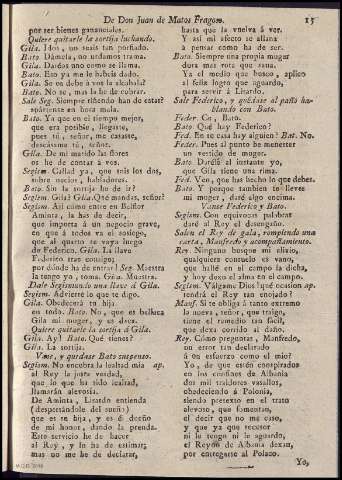 De Don Juan de Matos Fragoso. 15
por ser bienes gananciales.
Quiere quitarle la sortija luchando.
Gila. Idos, no seais tan porfiado.
Bato. Dámela, no andemos trama.
Gila. Dardos uno como se llama.
Bato. Eso ya me le habeis dado.
Gila. Se os debe á vos la alcabala?
Bato. No sé, mas la he de cobrar.
Sale Seg. Siempre riñendo han de estar?
apártense en hora mala.
Bato. Ya que en el tiempo mejor,
que era posible, llegaste,
pues tú, señor, me casaste,
descásame tú, señor.
Gila. De mi marido las flores
os he de contar á vos.
Segism. Callad ya, que mis los dos,
sobre necios, habladores.
Bato. Sin la sortija he de ir?
Segism. Gila? Gila. Qué mandas, señor?
Segism. Así como entre en Belflor
Aminta, la has de decir,
que importa á un negocio grave,
en que á todos va el sosiego,
que al quarto se vaya luego
de Federico. Gila. La llave
Federico trae consigo;
por dónde ha de entrar? Seg. Maestra
la tengo yo, toma. Gila. Muestra.
Dale Segismundo una llave á Gila.
Segism. Advierte lo que te digo.
Gila. Obedecerá tu hija
en todo. Bato. No, que es bellaca
Gila mi muger, y es vaca.
Quiere quitarle la sortija á Gila.
Gila. Ay! Bato. Qué tienes?
Gila. La sortija.
Vase, y quedase Bato suspenso.
Segism. No encubra la lealtad mia ap.
al Rey la justa verdad,
que lo que ha sido lealtad,
llamarán alevosía.
De Aminta, Lisardo entienda
(despertándole del sueño)
que es su hija, y es el dueño
de mi honor, dando la prenda.
Este servicio he de hacer
al Rey, y lo ha de estimar;
mas no me he de declarar,
hasta que la vuelva á ver.
Y así mi afecto se allana
á pensar como ha de ser.
Bato. Siempre una propia muger
dora mas rota que sana.
Ya el medio que busco, aplico
al feliz logro que aguardo,
para servir á Lisardo.
Sale Federico, y quédase al paño hablando
con Bato.
Feder. Ce, Bato.
Bato. Qué hay Federico?
Fed. En tu casa hay alguien? Bat. No.
Feder. Pues al punto he menester
un vestido de muger.
Bato. Daréle al instante yo,
que Gila tiene una rima.
Fed. Ven, que has hecho lo que debes.
Bato. Y porque tambien te lleves
mi muger, daré algo encima.
Vanse Federico y Bato.
Segism. Con equívocas palabras
daré al Rey el desengaño.
Salen el Rey de gala, rompiendo una
carta, Manfredo y acompañamiento.
Rey. Ninguno busque mi alivio,
qualquiera consuelo es vano,
que hallé en el campo la dicha,
y hoy dexo el alma en el campo.
Segism. Válgame Dios! qué ocasion ap.
tendrá el Rey tan enojado?
Manf. Si te obliga á tanto extremo
la nueva, señor, que traigo,
tiene el remedio tan fácil,
que dexa corrido al daño.
Rey. Cómo preguntas, Manfredo,
un error tan declarado
á un esfuerzo como el mio?
Yo, de que estén conspirados
en los confines de Albania
dos mil traidores vasallos,
obedeciendo á Polonia,
siendo pretexto en el trato
alevoso, que fomentan,
el decir que no me caso,
y que ya que recesor
ni lo tengo ni le aguardo,
el Reyno de Albania dexan,
por entregarse al Polaco.
Yo,